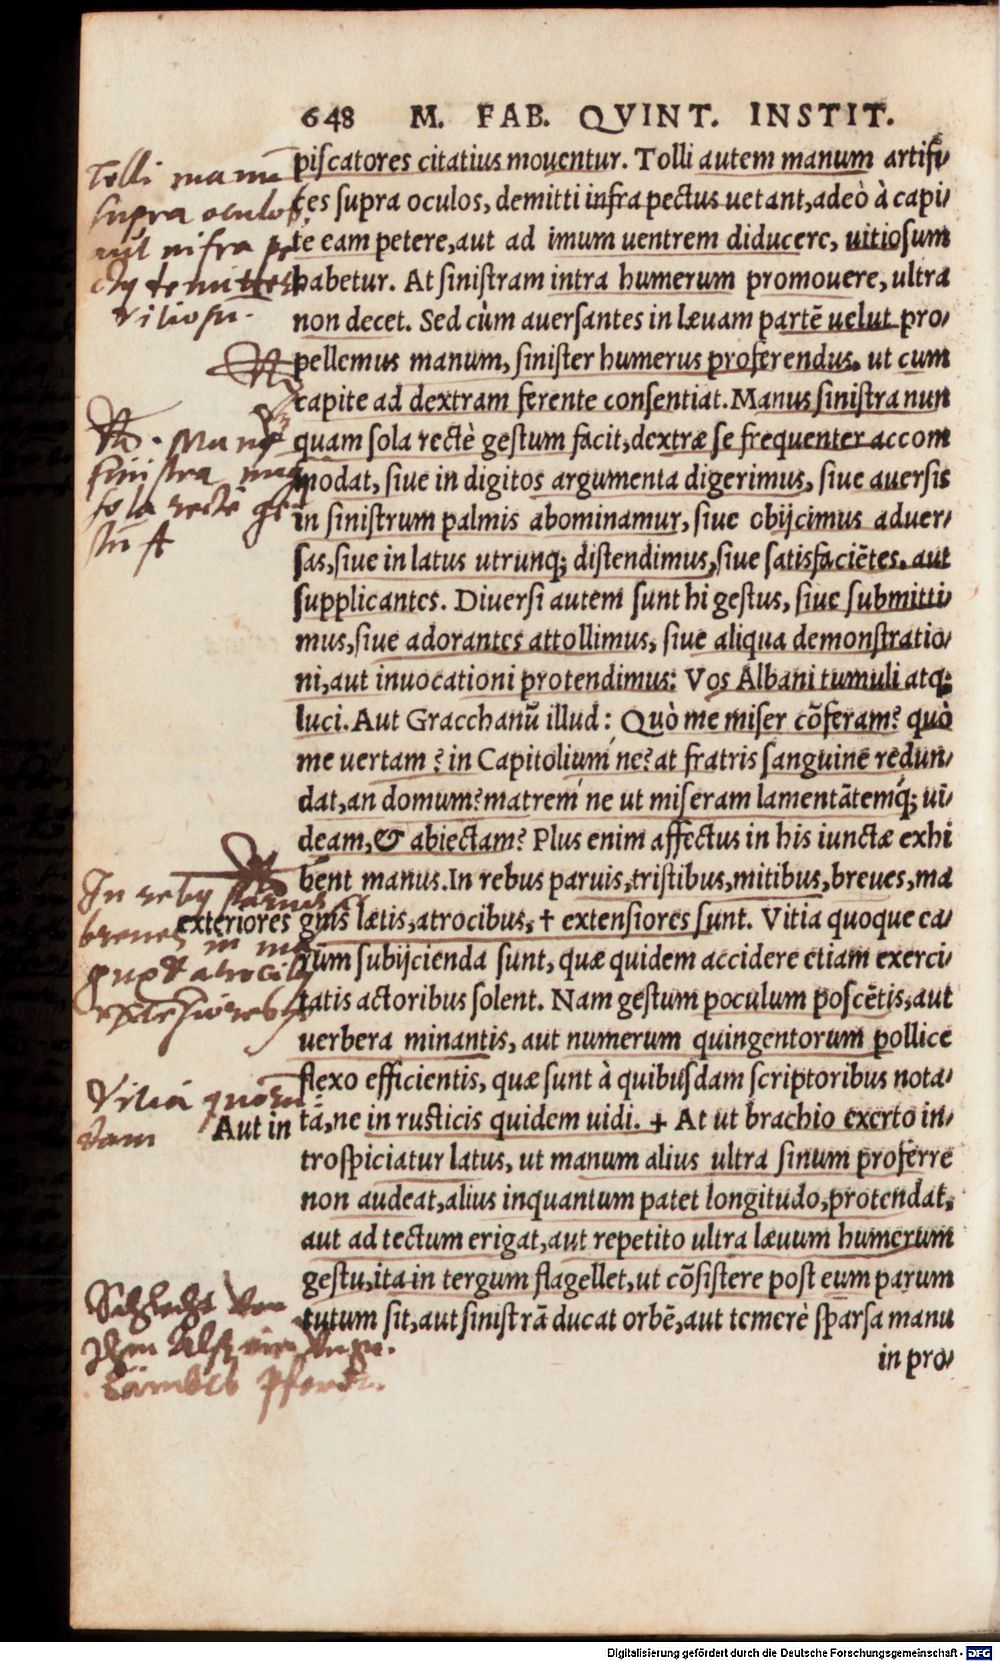 648 M. FAB. QVINT. INSTIT.
piſcatores citatius mouentur. Tolli autem manum artifi-
ces ſupra oculos, demitti infra pectus uetant, adeò à capi-
te eam petere, aut ad imum uentrem diducere, uitioſum
habetur. At ſiniſtram intra humerum promouere, ultra
non decet. Sed cùm auerſantes in læuam partē uelut pro-
pellemus manum, ſiniſter humerus proferendus, ut cum
capite ad dextram ferente conſentiat. Manus ſiniſtra nun
quam ſola rectè geſtum facit, dextræ ſe frequenter accom
modat, ſiue in digitos argumenta digerimus, ſiue auerſis
in ſiniſtrum palmis abominamur, ſiue obijcimus aduer-
ſas, ſiue in latus utrunq; diſtendimus, ſiue ſatisfaciētes, aut
ſupplicantes. Diuerſi autem ſunt hi geſtus, ſiue ſubmitti-
mus, ſiue adorantes attollimus, ſiue aliqua demonſtratio-
ni, aut inuocationi protendimus: Vos Albani tumuli atq;
luci. Aut Gracchanū illud: Quò me miſer cōferam? quò
me uertam? in Capitolium ne? at fratris ſanguine redun-
dat, an domum? matrem ne ut miſeram lamentātemq́; ui-
deam, & abiectam? Plus enim affectus in his iunctæ exhi
bent manus. In rebus paruis, triſtibus, mitibus, breues, ma
exteriores gnis lætis, atrocibus, † extenſiores ſunt. Vitia quoque ea-
rum ſubijcienda ſunt, quæ quidem accidere etiam exerci-
tatis actoribus ſolent. Nam geſtum poculum poſcētis, aut
uerbera minantis, aut numerum quingentorum pollice
flexo efficientis, quæ ſunt à quibuſdam ſcriptoribus nota-
Aut in ta, ne in ruſticis quidem uidi. † At ut brachio exerto in-
troſpiciatur latus, ut manum alius ultra ſinum proferre
non audeat, alius inquantum patet longitudo, protendat,
aut ad tectum erigat, aut repetito ultra læuum humerum
geſtu, ita in tergum flagellet, ut cōſiſtere poſt eum parum
tutum ſit, aut ſiniſtrā ducat orbē, aut temerè ſparſa manu
in pro-
Tolli manū
ſupra oculos
aut infra pe
demittere
vitioſu.
Manꝰ
ſiniſtra
ſola recte
In rebꝰ paruis
breues in ma
atrocibꝰ
Vitia
Digitalisierung gefördert durch die Deutsche Forschungsgemeinschaft - DFG